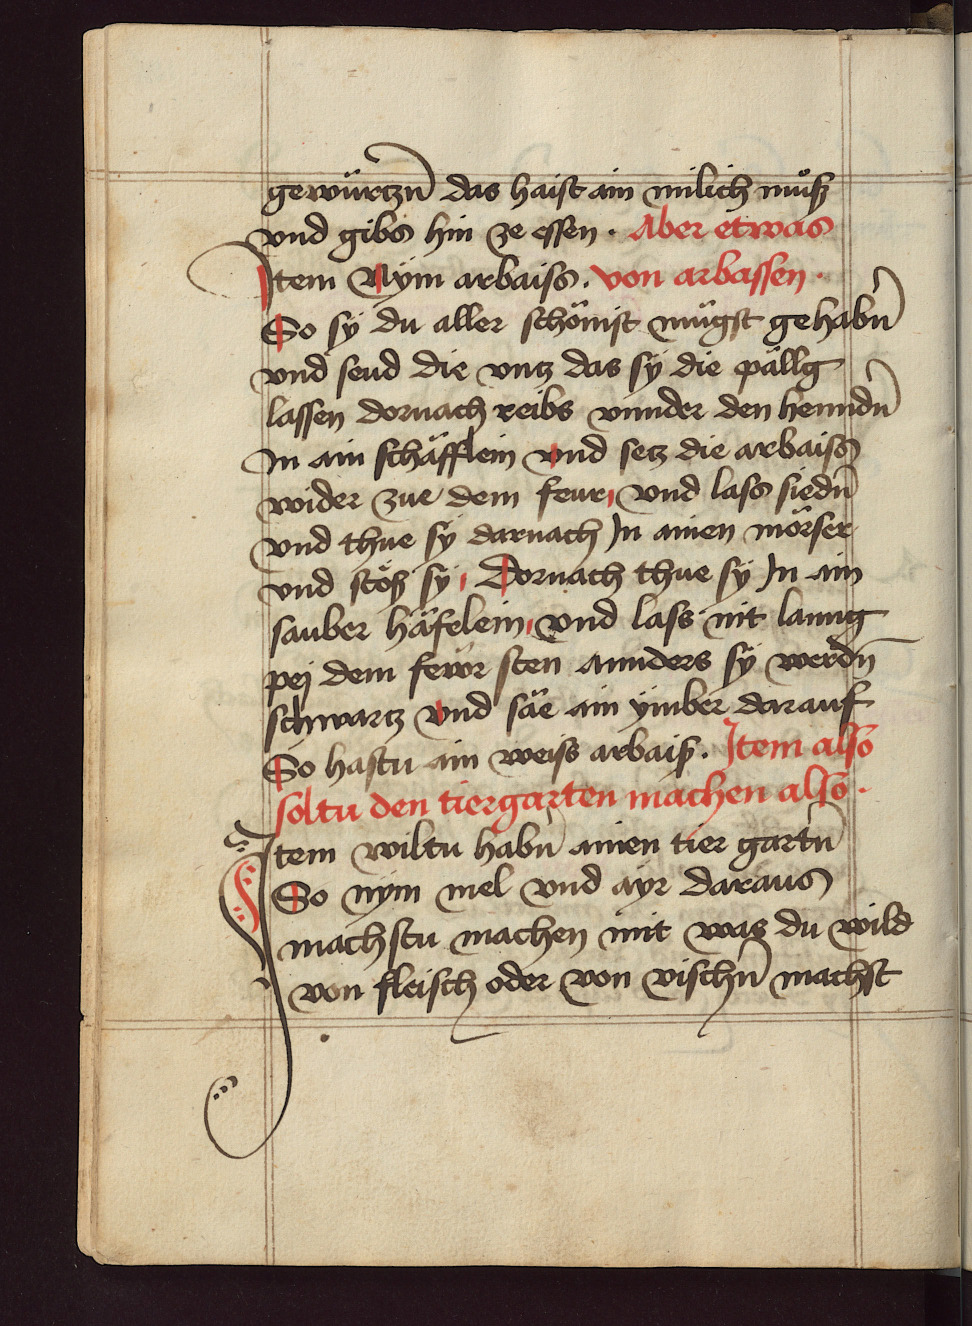 gewürtzn̄ das haist ain milich můſz
vnd gibs hin ze essen · Aber etwas
Jtem Nym arbaiss. von arbassen ·
So sÿ du aller schönist mügst gehabn̄
vnd seud die vntz das sÿ die pällg
lassen dornach reibs vnnder den henndn̄
Jn ain schäfflein vnd setz die arbaiss
wider zue dem feur, vnd lass siedn̄
vnd thue sÿ darnach Jn ainen mörser
vnd stöſz sÿ, Dornach thue sÿ Jn ain
sauber häfelein, vnd lass nit lanng
pej dem fewr sten annders sÿ werdn̄
schwartz vnd säe ain ÿmber darauf
So hastu ain weiss arbaiſz. Jtem also
soltu den tiergarten machen also ·
Jtem wiltu habn̄ ainen tier gartn̄
So nÿm mel vnd ayr daraus
machstu machen mit was du wild
von fleisch oder von vischn̄ machst